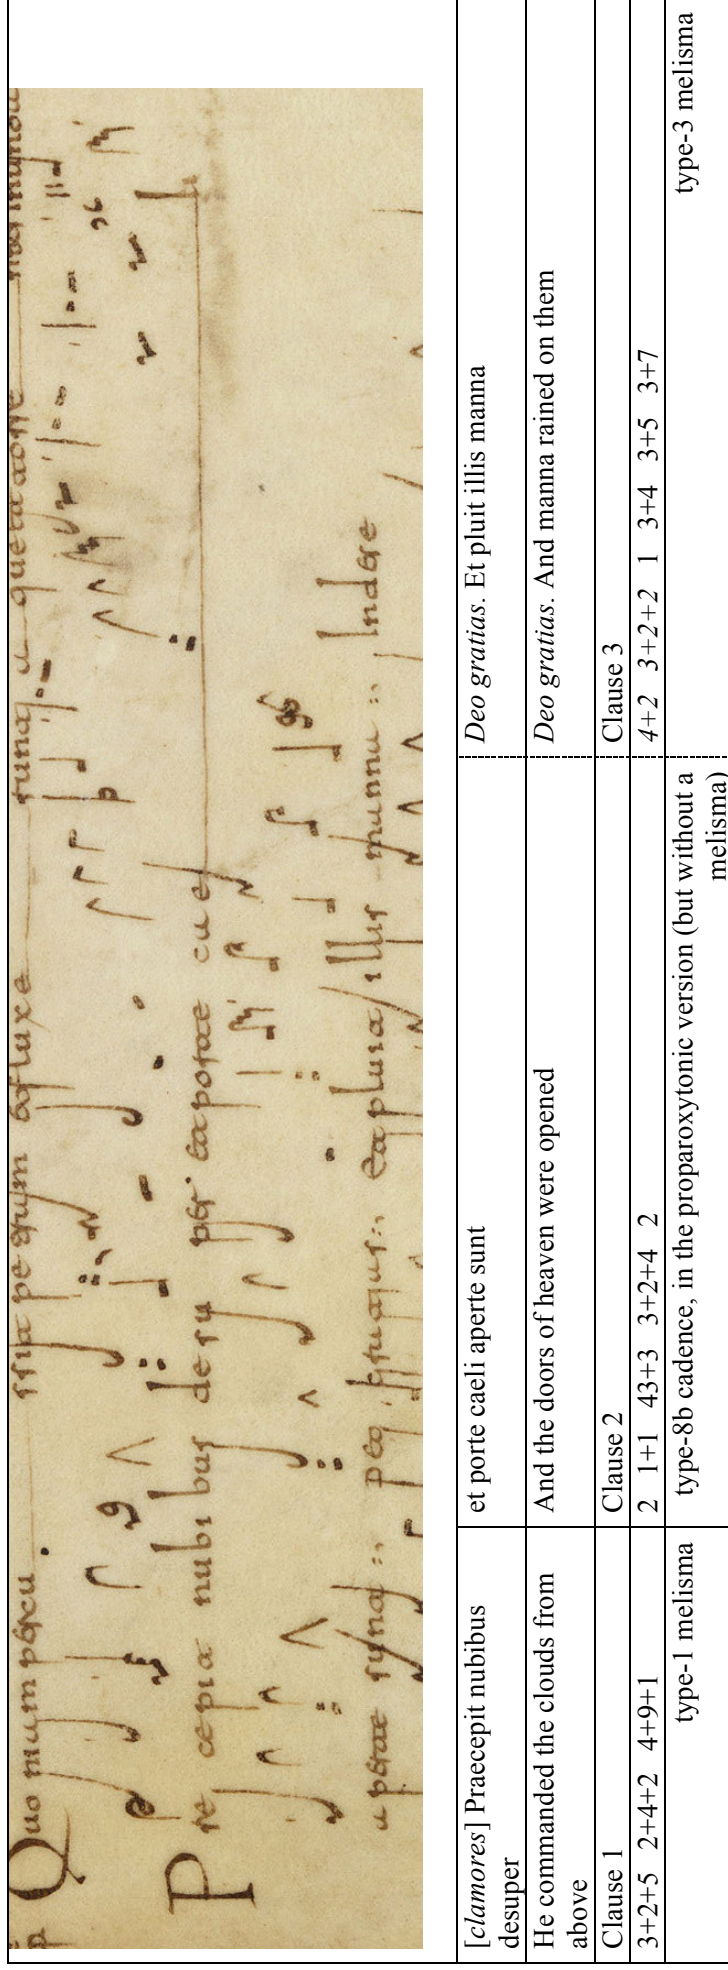 Quo niam percu ssit pe trum et fluxe runt a que et torre
Pre cepit nubi bus desu per et porte cae l
aperte sunt :: Deo gratias :: Et pluit illis manna ::
[clamores] Praecepit nubibus desuper
et porte caeli aperte sunt
Deo gratias. Et pluit illis manna
He commanded the clouds from above
And the doors of heaven were opened
Deo gratias. And manna rained on them
Clause 1
Clause 2
Clause 3
3+2+5 2+4+2 4+9+1
2 1+1 43+3 3+2+4 2
4+2 3+2+2 1 3+4 3+5 3+7
type-1 melisma
type-8b cadence, in the proparoxytonic version (but without a melisma)
type-3 melisma